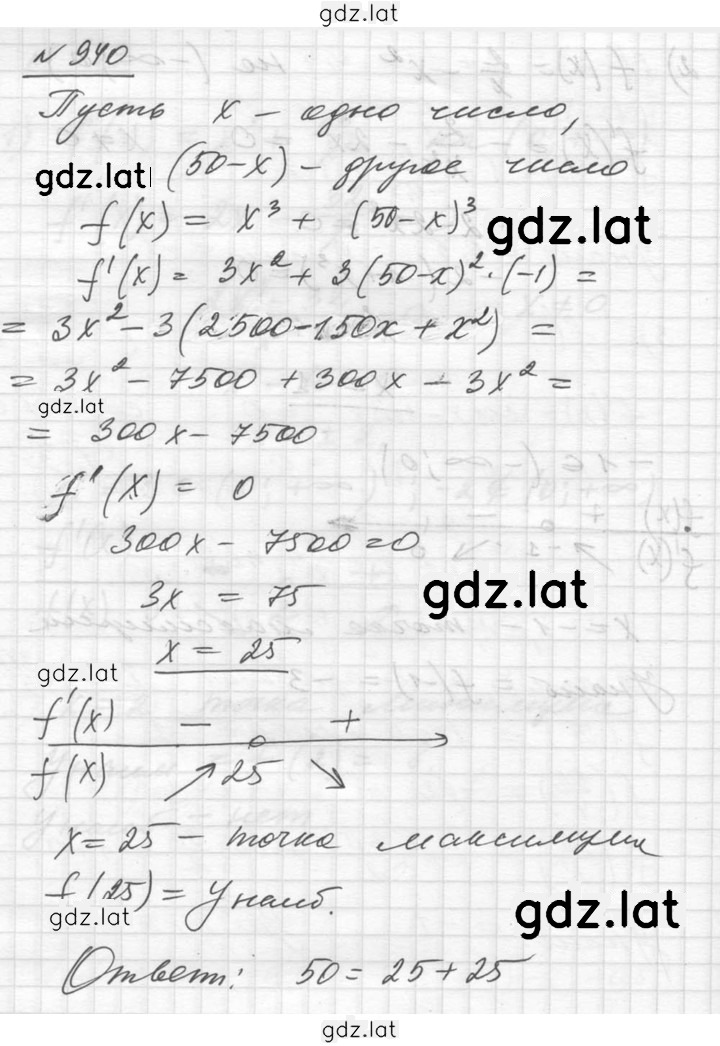 gdz.lat
№ 940
Пусть x - одно число,
gdz.lat (50-x) - другое число
f(x) = x³ + (50-x)³ gdz.lat
f'(x) = 3x² + 3(50-x)²·(-1) =
= 3x² - 3(2500-150x + x²) =
= 3x² - 7500 + 300x - 3x² =
gdz.lat
= 300x - 7500
f'(x) = 0
300x - 7500 = 0
3x = 75 gdz.lat
x = 25
gdz.lat
f'(x) - +
f(x) ↗ 25 ↘
x = 25 - точка максимум
f(25) = y наиб.
gdz.lat gdz.lat
Ответ: 50 = 25 + 25
gdz.lat